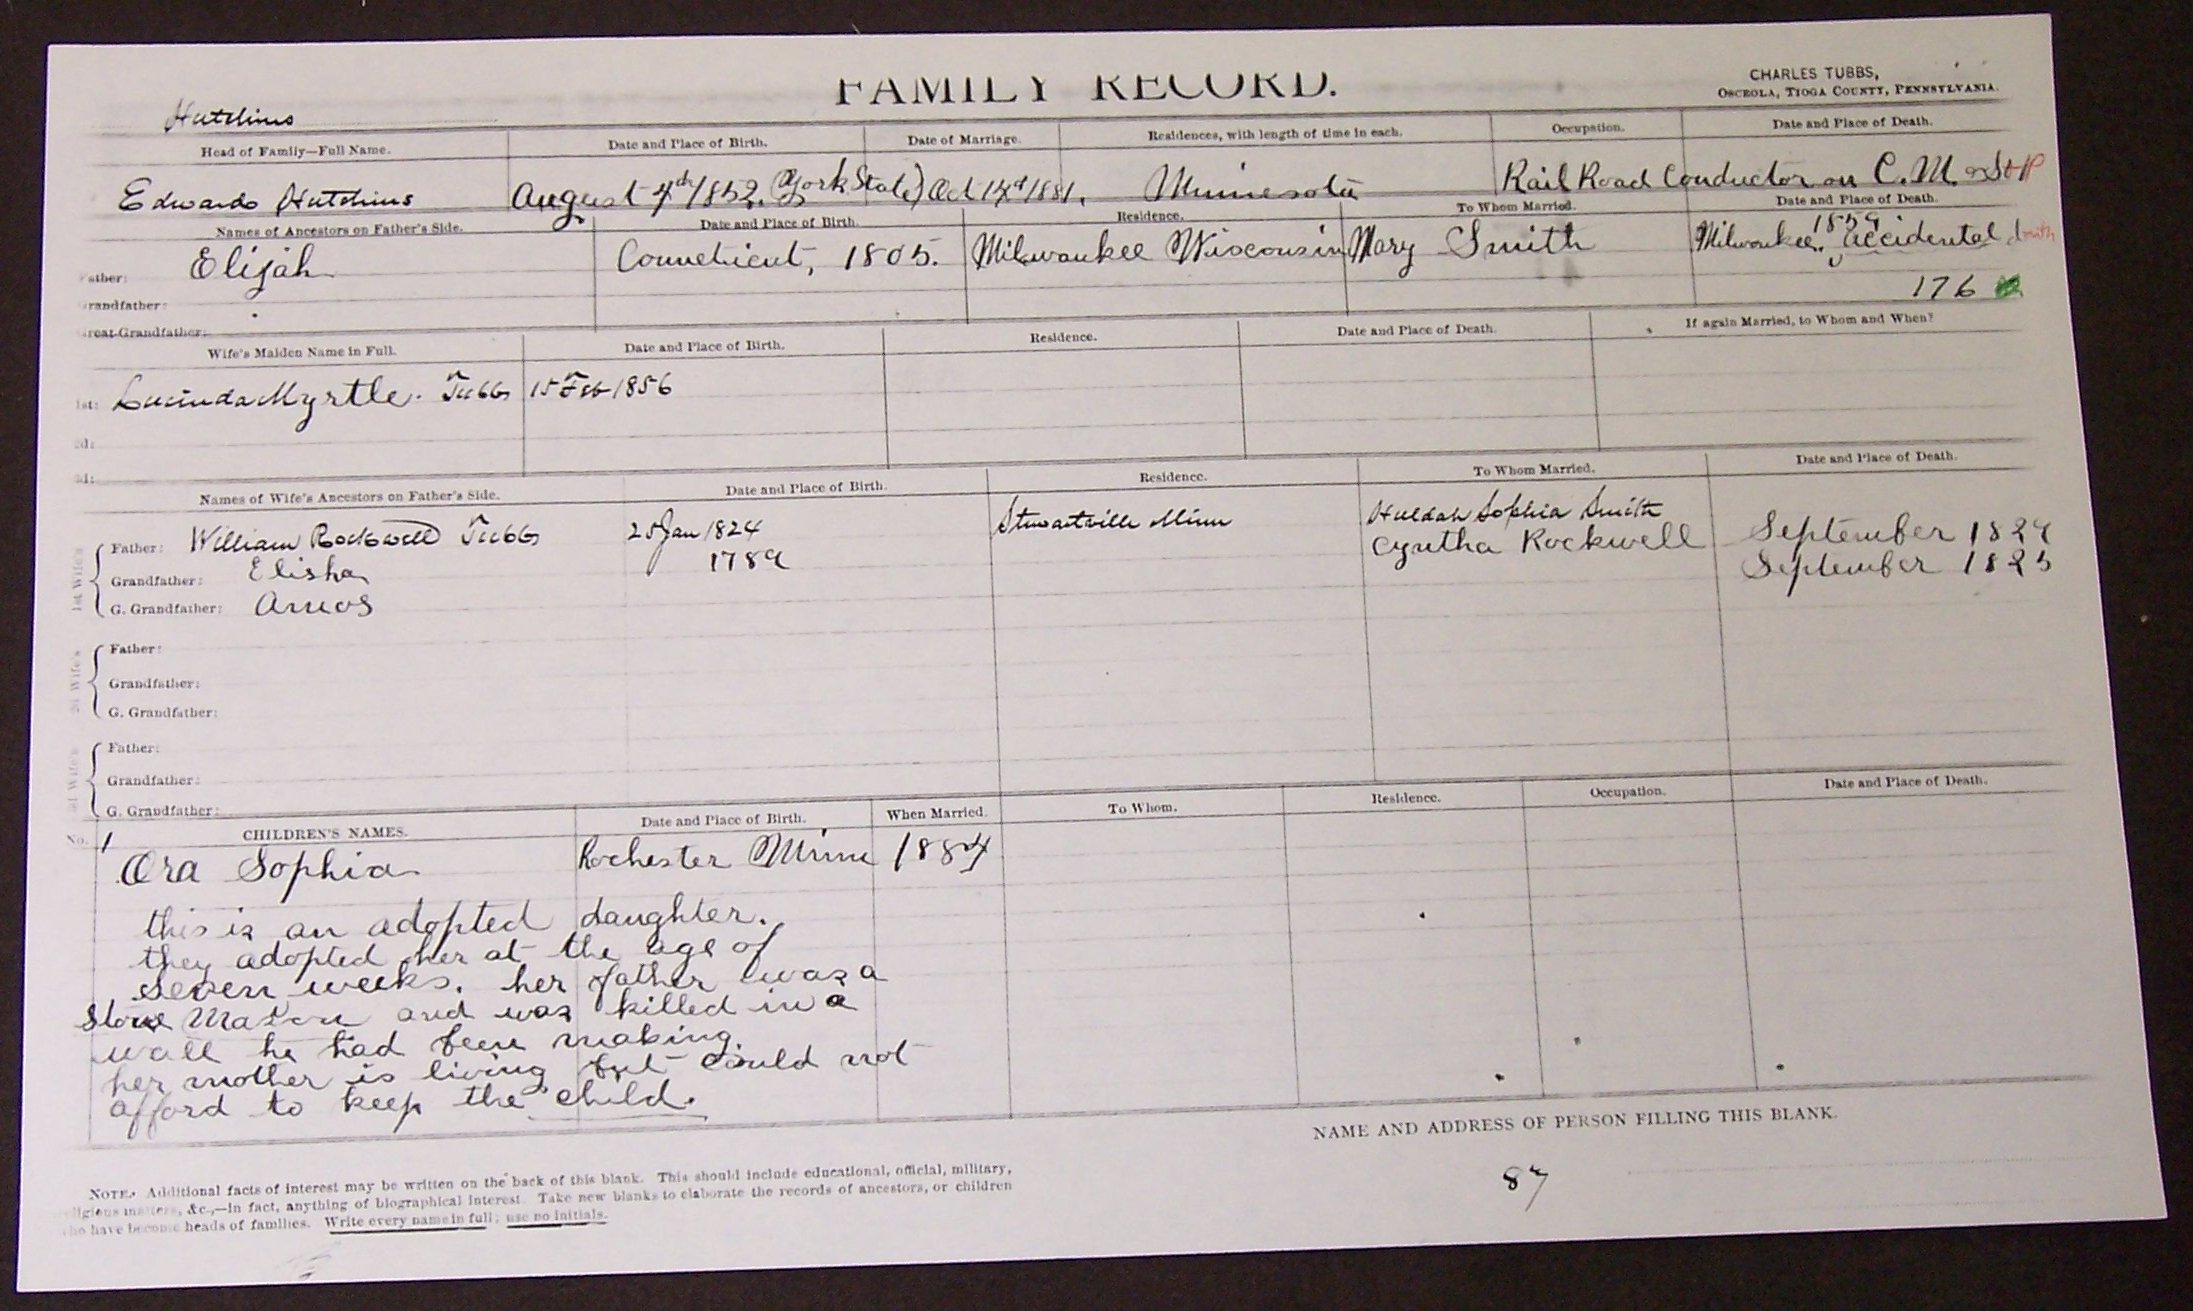 FAMILY RECORD.
CHARLES TUBBS,
OSCEOLA, TIOGA COUNTY, PENNSYLVANIA.
Hutchins
Head of Family—Full Name. Date and Place of Birth. Date of Marriage. Residences, with length of time in each. Occupation. Date and Place of Death.
Edwards Hutchins August 4th 1852. (York State) Oct 1881. Minnesota Rail Road Conductor on C. M. & St P
Names of Ancestors on Father's Side. Date and Place of Birth. Residence. To Whom Married. Date and Place of Death.
Father: Elijah Conneticut, 1805. Milwaukee Wisconsin Mary Smith Milwaukee. 1859 accidental death
Grandfather: 176
Great-Grandfather:
Wife's Maiden Name in Full. Date and Place of Birth. Residence. Date and Place of Death. If again Married, to Whom and When?
1st: Lucinda Myrtle. Tubbs 15 Feb 1856
2d:
3d:
Names of Wife's Ancestors on Father's Side. Date and Place of Birth. Residence. To Whom Married. Date and Place of Death.
1st Wife's
Father: William Rockwell Tubbs 25 Jan 1824 Stewartville Minn Huldah Sophia Smith
Grandfather: Elisha 1789 Cyntha Rockwell September 1824
G. Grandfather: Amos September 1825
2d Wife's
Father:
Grandfather:
G. Grandfather:
3d Wife's
Father:
Grandfather:
G. Grandfather:
No. CHILDREN'S NAMES. Date and Place of Birth. When Married. To Whom. Residence. Occupation. Date and Place of Death.
1 Ora Sophia Rochester Minn 1884
this is an adopted daughter.
they adopted her at the age of
seven weeks. her father was a
stone Mason and was killed in a
wall he had been making.
her mother is living but could not
afford to keep the child.
NAME AND ADDRESS OF PERSON FILLING THIS BLANK.
87
NOTE. Additional facts of interest may be written on the back of this blank. This should include educational, official, military,
religious matters, &c.,—in fact, anything of biographical interest. Take new blanks to elaborate the records of ancestors, or children
who have become heads of families. Write every name in full; use no initials.